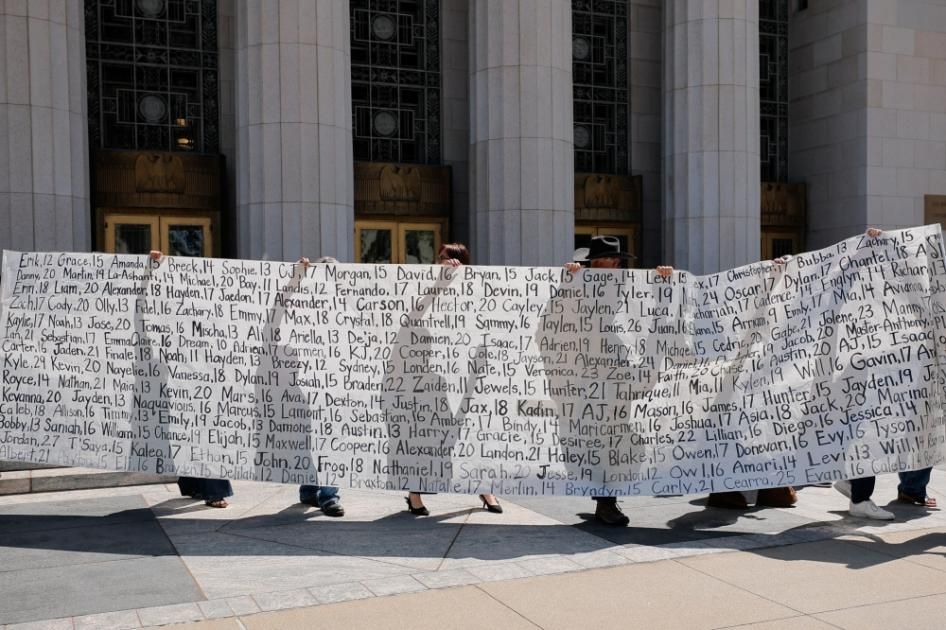 Erik,12 Grace,15 Amanda,15 Breck,14 Sophie,13 CJ,17 Morgan,15 David,16 Bryan,15 Jack,15 Gage,14 Lexi, Christopher, Bubba,13 Zachary,15
Danny,20 Martin,19 Michael,20 Bay,11 Landis,12 Fernando,17 Lauren,18 Devin,19 Daniel,16 Tyler,19 Oscar,17 Dylan,17 Chantel,18
Erin,18 Liam,20 Alexander,18 Hayden,17 Jaedon,17 Alexander,14 Carson,16 Hector,20 Cayley, Jaylen, Luca, Cadence, England,14 Richard,
Zach,17 Cody,20 Olly,13 Fidel,16 Zachary,18 Emmy, Max,18 Crystal,18 Quantrell,19 Sammy,16 Taylen,15 Louis,26 Juan,16 Dana,15 Arman, Emily, Mia,14 Avianna,
Kaylie,17 Noah,13 Jose,20 Tomas,16 Mischa,13 Ali, Ariella,13 Deja,12 Damien,20 Isaac,17 Adrien,19 Herry,18 Michael, Cedric, Gabe, Jolene,23
Sebastian,17 Emma Claire,16 Dream,10 Adrien,17 Carmen,16 KJ,20 Cooper,16 Nate,18 Jayson,21 Alexander,24 Chase, Jacob,21 Master-Anthony,
Carter,15 Jaden,21 Finale,18 Noah,11 Hayden, Breezy,12 Sydney,15 London,16 Nate,15 Veronica,23 Zoe,14 Faith, Rylee, Austin,20 AJ,15 Isaac,
Kyle,24 Kevin,20 Nayelie,16 Vanessa,18 Dylan,19 Josiah,15 Braden,22 Zaiden,11 Jewels,15 Hunter,21 Mia,11 Kylen,19 Will,16 Gavin,17
Royce,14 Nathan,21 Maia,13 Kevin,20 Mars,16 Ava,17 Dexton,14 Justin,18 Jax,18 Kadin,17 AJ,16 Mason,16 James,17 Hunter,15 Jayden,19
Kevanna,20 Jayden,13 Naquavious,16 Marcus,15 Lamont,16 Sebastian,16 Amber,17 Bindy,14 Maricarmen,16 Joshua,17 Asia,18 Jack,20 Marina,
Caleb,18 Allison,16 Timmy,13 Emily,19 Jacob,13 Damone,18 Austin,13 Harry,17 Gracie,15 Desiree,17 Charles,22 Lillian,16 Diego,16 Jessica,14
Bobby,13 Saniah,16 William,15 Chance,14 Elijah,15 Maxwell,17 Cooper,16 Alexander,20 Landon,21 Haley,15 Blake,15 Owen,17 Donevan,16 Evy,16 Tyson,
Jordan,27 T'Saya,15 Kalea,17 Ethan,15 John,20 Frog,18 Nathaniel,19 Sarah,20 Jesse,19 London,12 Owl,16 Amari,14 Levi,13 Will,14
Albert,21 Ell,16 Brayden,15 Delilah,12 Dante,12 Braxton,12 Natalie,17 Merlin,14 Bryndyn,15 Carly,21 Cearra,25 Evan,16 Caleb,